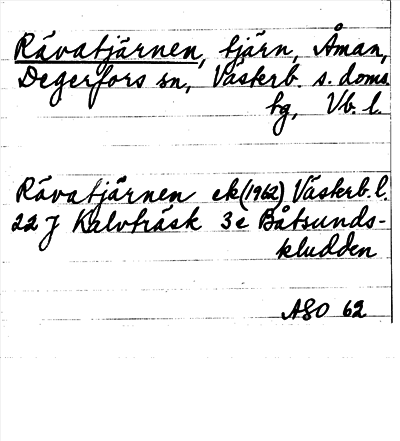 Rävatjärnen, tjärn, Åman,
Degerfors sn, Västerb. s. doms.
hg, Vb. l.
Rävatjärnen ek (1962) Västerb. l.
22 J Kalvträsk 3 e Båtsunds-
kludden
ASO 62